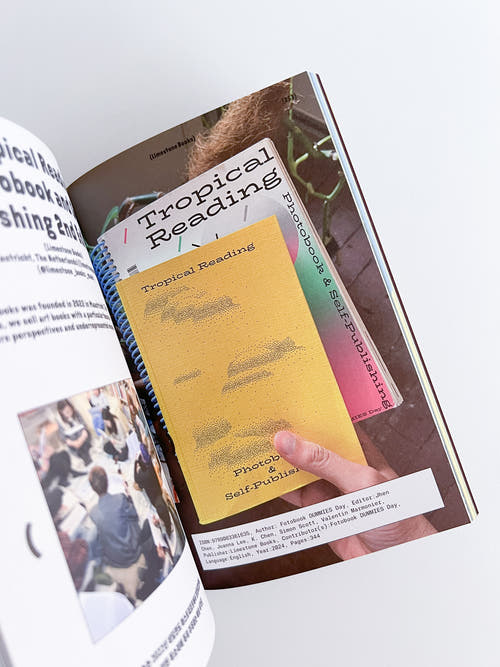 pical Rea
obook and
shing 2nd E
[Limestone Books]
astricht, The Netherlands
(@limestone_books
ooks was founded in 2022 in Maastric
we sell art books with a particular
re perspectives and underrepresente
[Limestone Books]
Tropical
Reading
Photobook & Self-Publishing
Tropical Reading
Photob
&
Self-Publish
Author: Fotobook DUMMIES Day, Editor:Jhen
Chen, Joanna Lee, K. Chen, Simon Scott, Valentin Marmonier,
Publisher:Limestone Books, Contributor(s):Fotobook DUMMIES Day,
Language:English, Year:2024, Pages:344